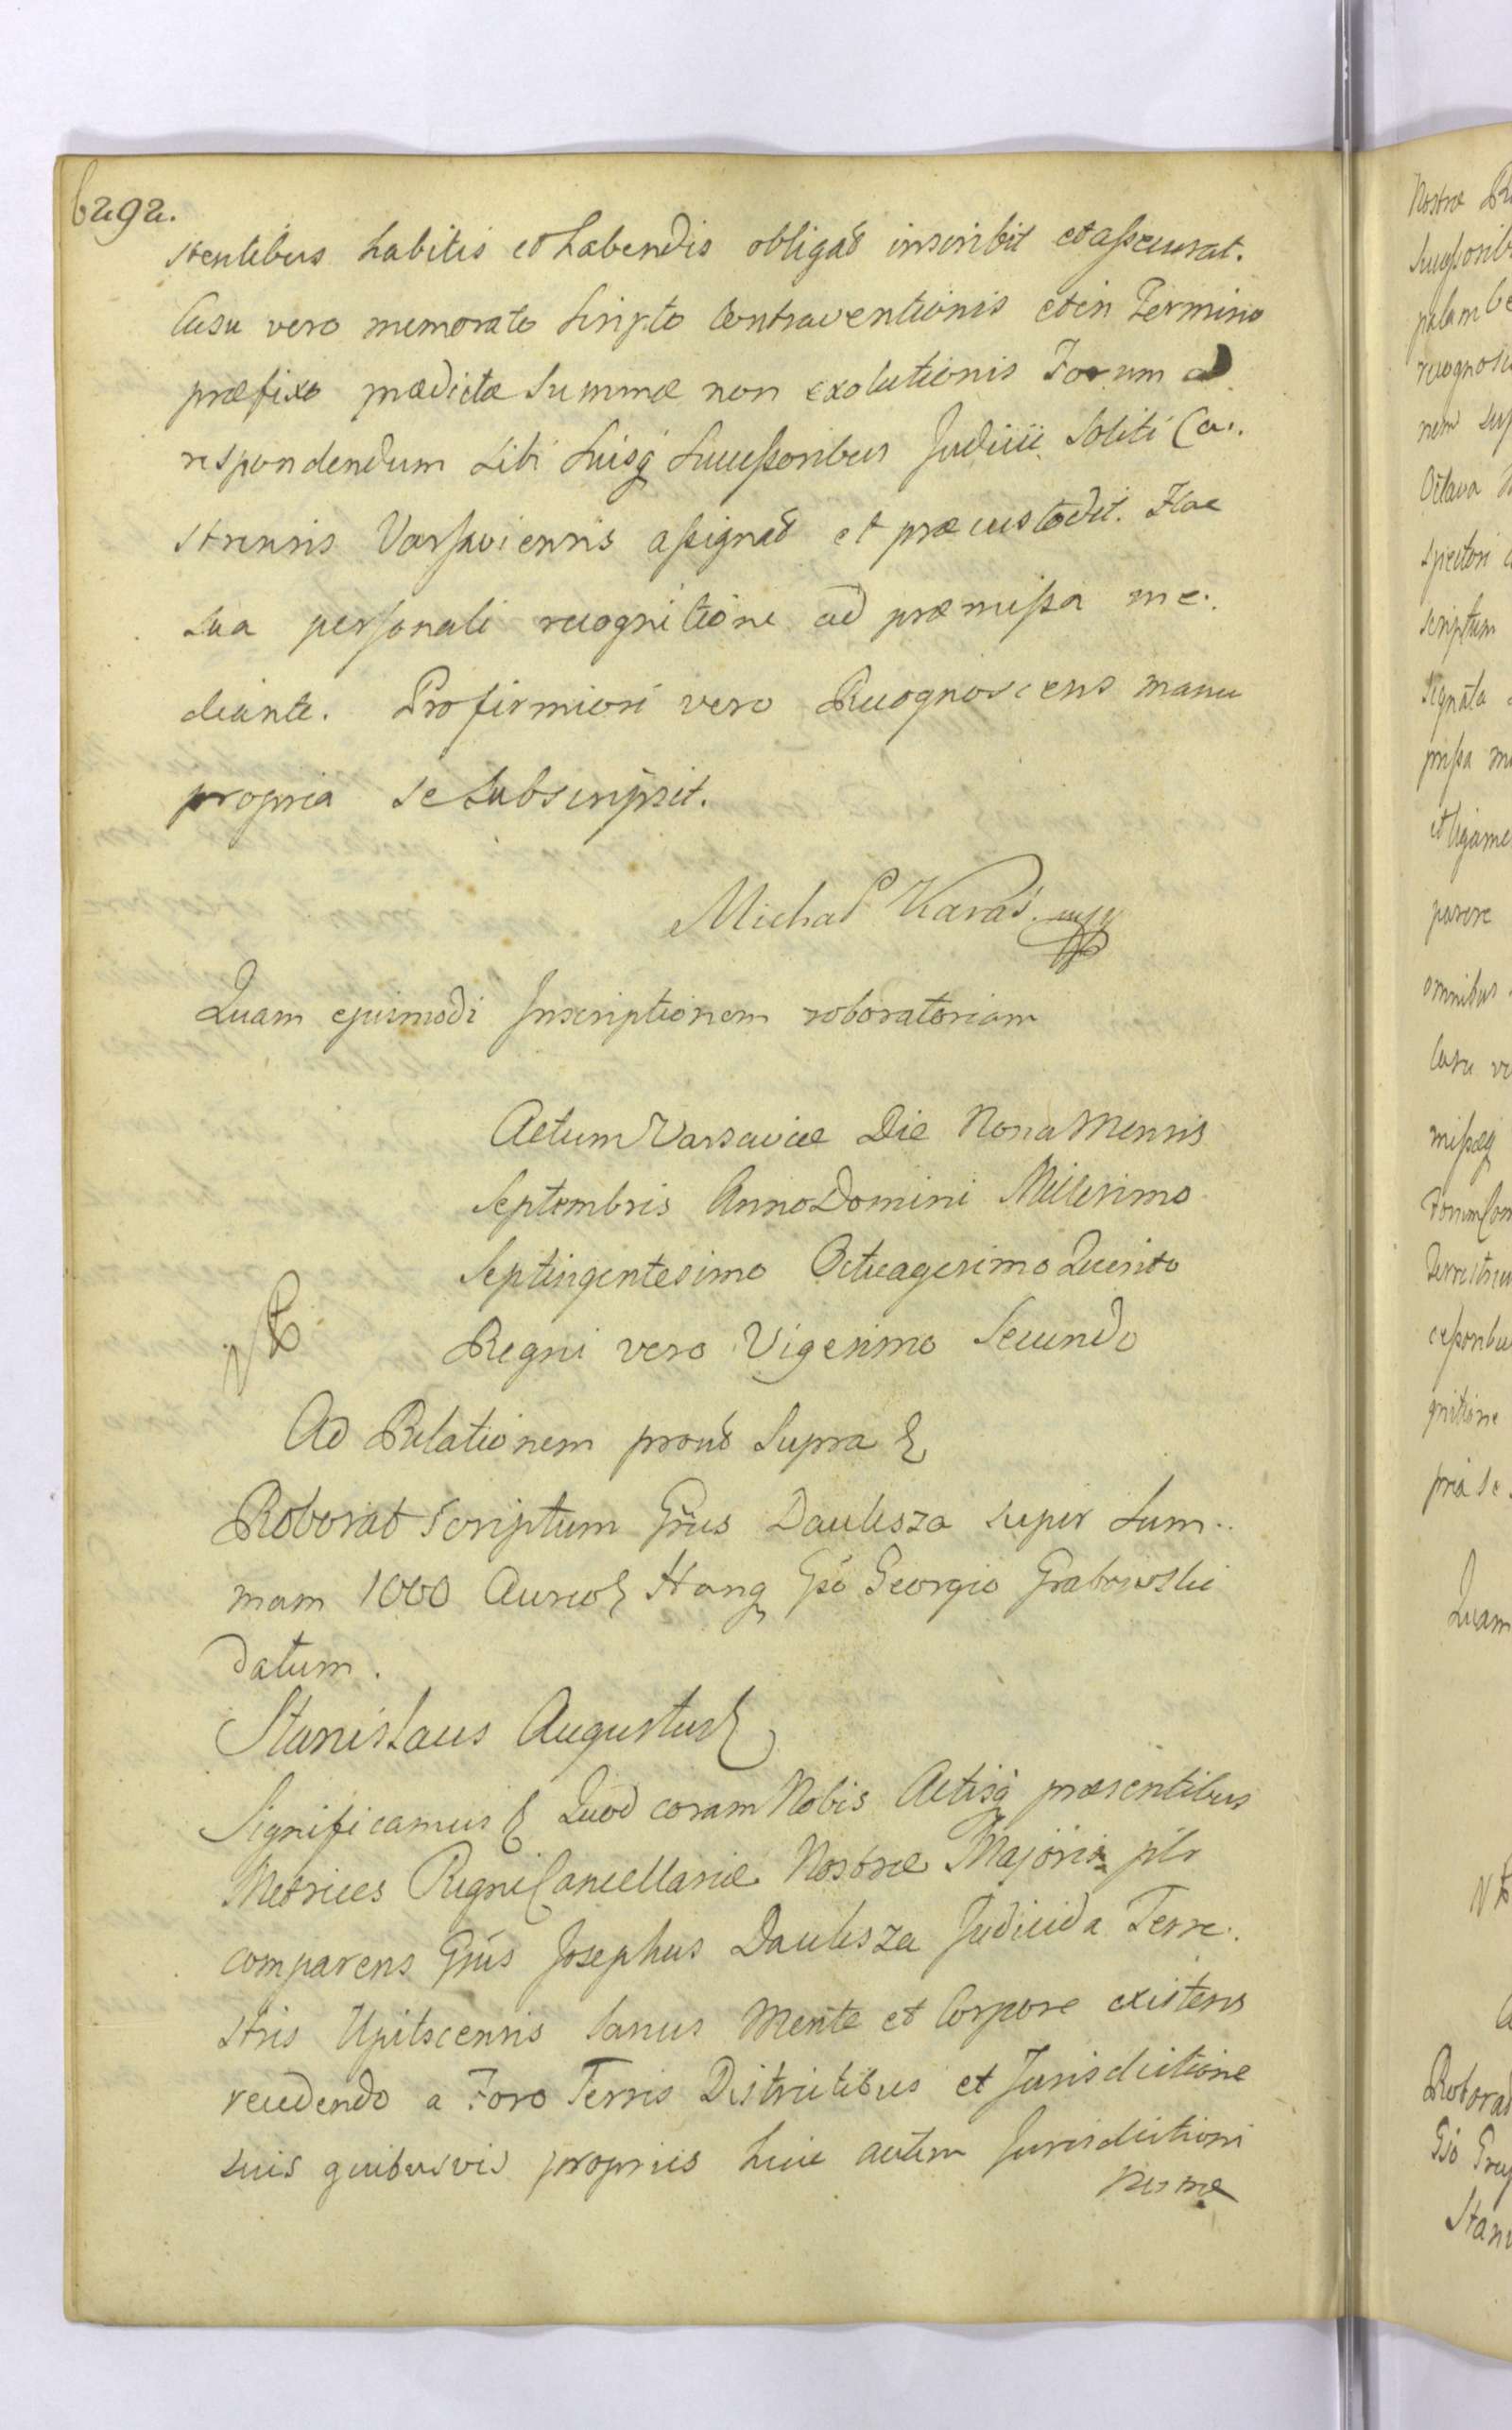 6292.
stentibus habitis et habendis obligat inscribit et aßecurat.
Casu vero memorato Scripto Contraventionis et in Termino
præfixo prædictæ Summæ non exolutionis Forum ad
respondendum Sibi Suisq Succeßoribus Judicii Soliti Ca.
strensis Varsaviensis aßignat et præcustodit. Hac
sua personali recognitione ad præmißa me.
diante. Pro firmiori vero Recognoscens manu
propria se Subscripsit.
Michał Karaś mp
Quam ejusmodi Inscriptionem roboratoriam
Actum Varsaviæ Die Nona Mensis
Septembris Anno Domini Millesimo
Septingentesimo Octuagesimo Quinto
Regni vero Vigesimo Secundo
Ad Relationem prout Supra &
Roborat Scriptum Gsus Daulesza super Sum..
mam 1000 Aureo Hung Gso Georgio Grabowski
datum.
Stanislaus Augustus &
Significamus & Quod coram Nobis Actisq præsentibus
Metrices Regni Cancellariæ Nostræ Majoris plr
comparens Gsus Josephus Daulesza Judicida Terre.
stris Upitscensis Sanus Mente et Corpore existens
recedendo a Foro Terris Districtibus et Jurisdictione
suis quibusvis propriis huic autem Jurisdictioni